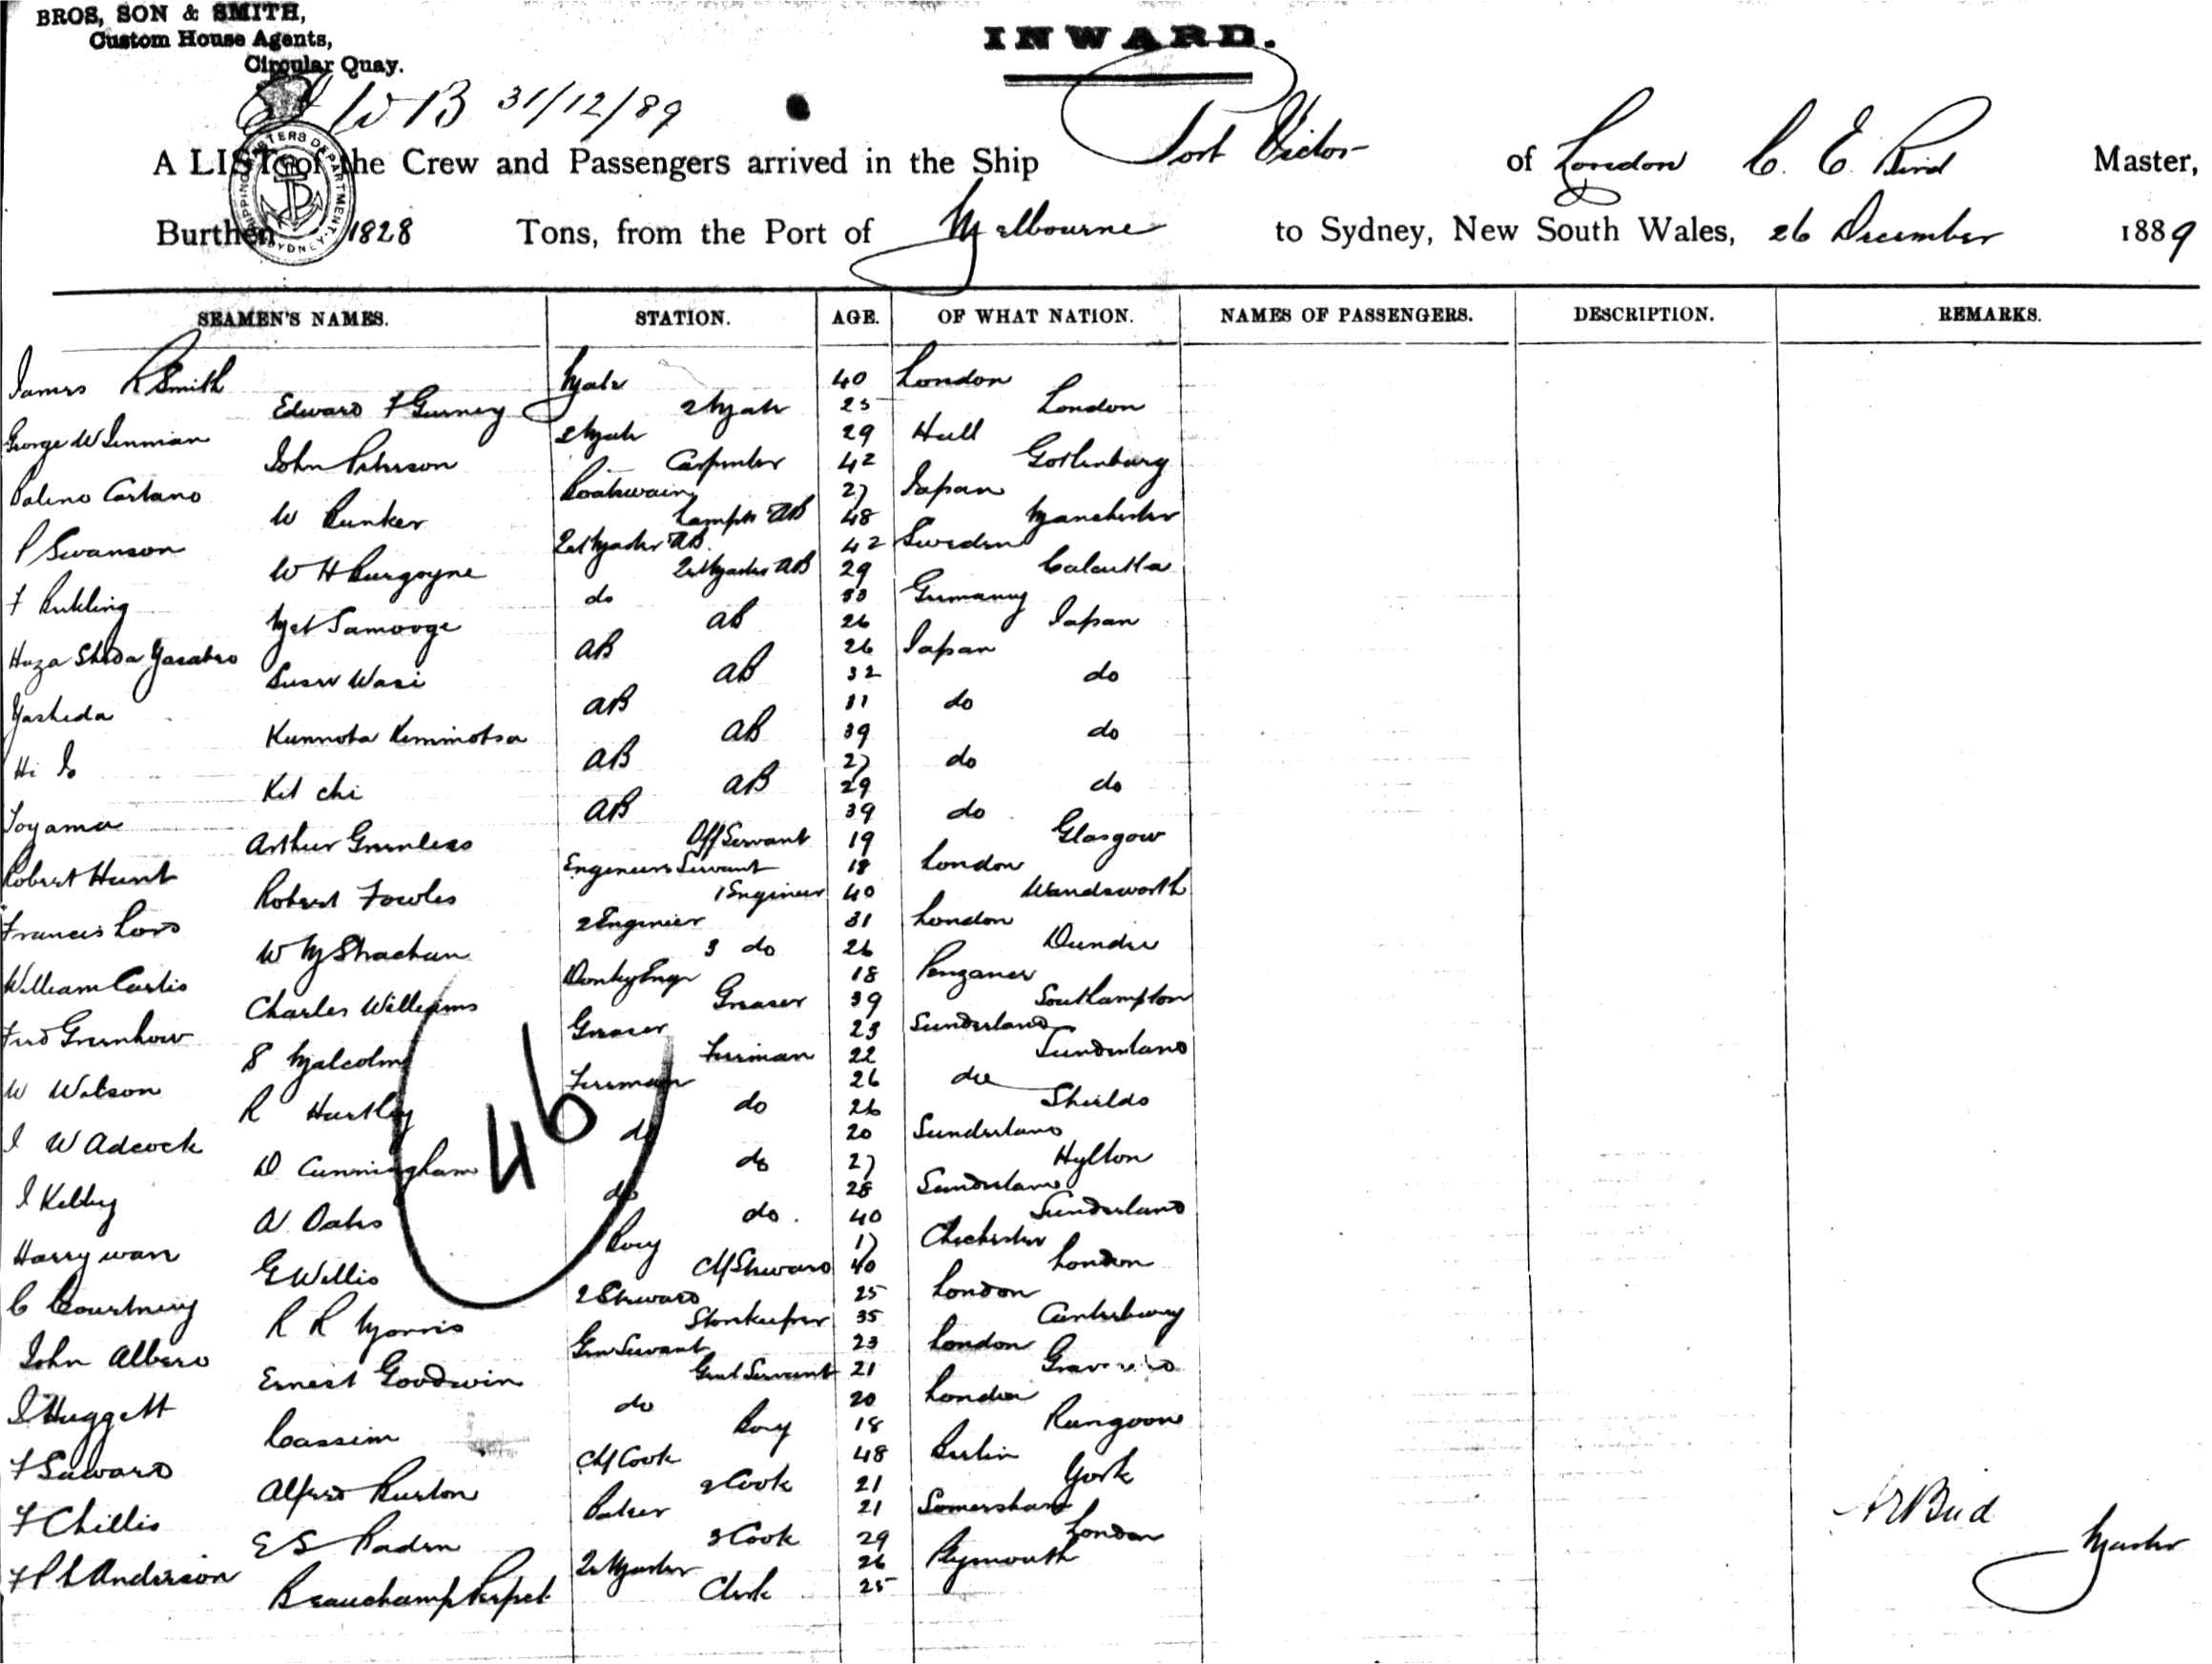 BROS, SON & SMITH,
Custom House Agents,
Circular Quay.
INWARD.
31/12/89
SHIPPING MASTERS DEPARTMENT SYDNEY
A LIST of the Crew and Passengers arrived in the Ship Port Victor of London C. E. Bird Master,
Burthen 1828 Tons, from the Port of Melbourne to Sydney, New South Wales, 26 December 1889
SEAMEN'S NAMES. STATION. AGE. OF WHAT NATION. NAMES OF PASSENGERS. DESCRIPTION. REMARKS.
James R Smith Mate 40 London
Edward F Gurney 2 Mate 25 London
George W Inman 2 Mate 29 Hull
John Peterson Carpenter 42 Gothenburg
Cartano Boatswain 27 Japan
W Bunker Lamps AB 48 Manchester
P Swanson Qrt Master AB. 42 Sweden
W H Burgoyne Qrt Master AB 29 Calcutta
F do Germany
Samooge AB 26 Japan
AB 26 Japan
Wasi AB 32 do
Yasheda AB do
Kunnota Kimmotsa AB 39 do
Hi AB 27 do
Kit chi AB 29 do
Toyama AB 39 do
Arthur Greenless Off Servant 19 Glasgow
Robert Hunt Engineers Servant 18 London
Robert Fowles 1 Engineer 40 Wandsworth
Francis Lord 2 Engineer 31 London
W M Strachan 3 do 26 Dundee
William Curtis Donkey Engr 18 Penzance
Charles Williams Greaser 39 Southampton
Fred Greenhow Greaser 23 Sunderland
S Malcolm Fireman 22 Sunderland
W Watson Fireman 26 do
R Hartley do 26 Shields
J W Adcock do 20 Sunderland
D Cunningham do 27 Hylton
J Kelley do 28 Sunderland
W Oates do. 40 Sunderland
Harry Boy 17 Chichester
G Willis Chf Steward 40 London
C Courtney 2 Steward 25 London
R R Morris Storekeeper 35 Canterbury
John Gen Servant 23 London
Ernest Goodwin Genl Servant 21 Gravesend
J Huggett do 20 London
Cassim Boy 18 Rangoon
F Seward Chf Cook 48 Berlin
Alfred Burton 2 Cook 21 York
F Chillis Baker 21 Somersham
E S Baden 3 Cook 29 London
F P L Anderson Qrt Master 26 Plymouth
Beauchamp Clerk 25
46
Bird Master